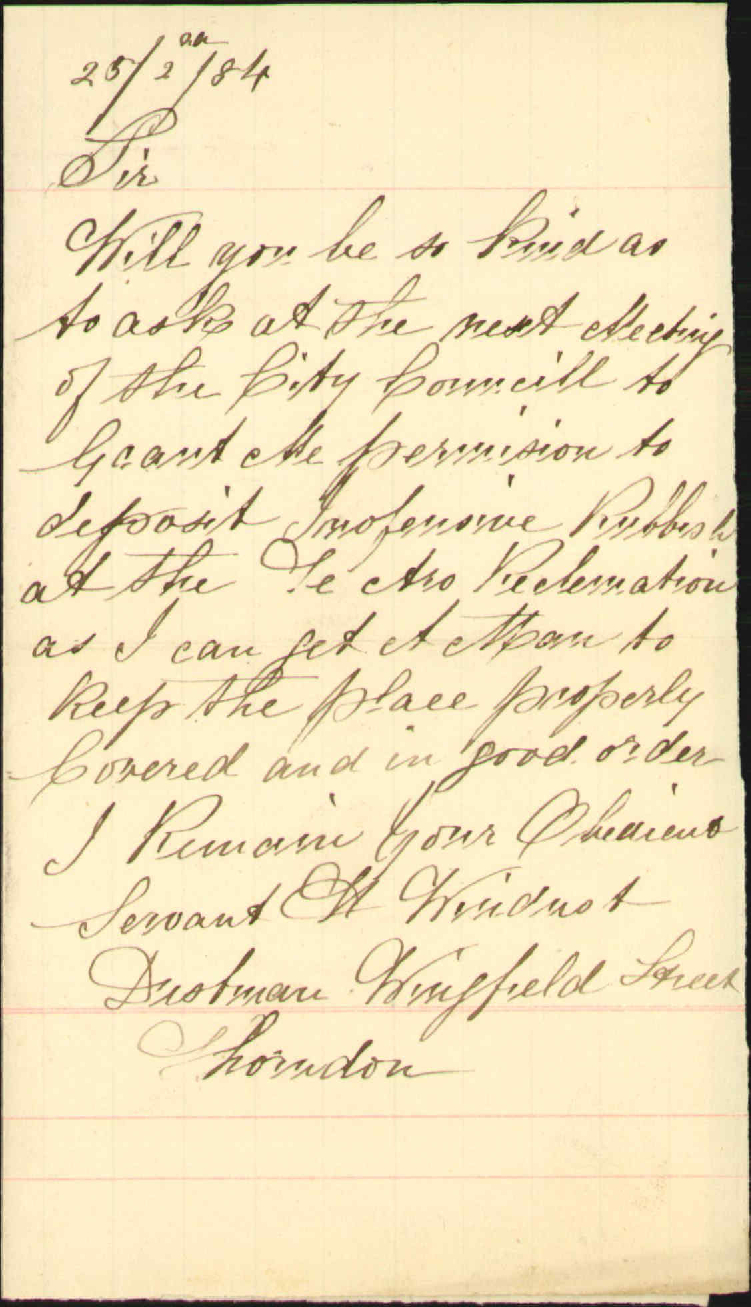 25/2nd/84
Sir
Will you be so Kind as
to ask at the next Meeting
of the City Councill to
Grant Me permision to
deposit Inofensive Rubbish
at the Te Aro Reclemation
as I can get A Man to
Keep the place properly
Covered and in good order
I Remain Your Obedient
Servant H Windust
Dustman Wingfield Street
Thorndon